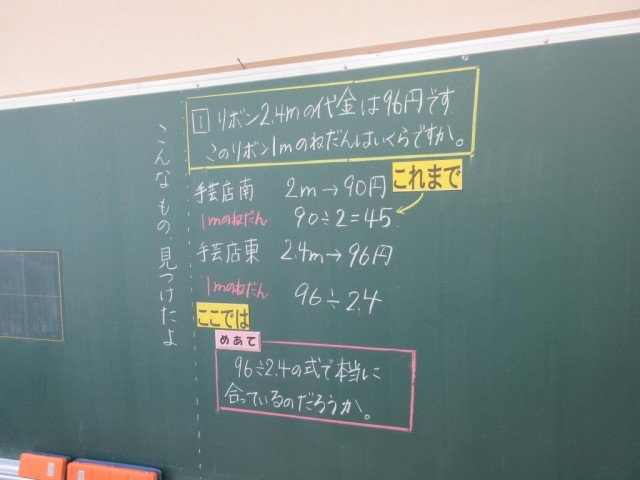 1 リボン2.4mの代金は96円です
このリボン1mのねだんはいくらですか。
こんなもの、見つけたよ
手芸店南 2m→90円 これまで
1mのねだん 90÷2=45
手芸店東 2.4m→96円
1mのねだん 96÷2.4
ここでは
めあて
96÷2.4の式で本当に
合っているのだろうか。